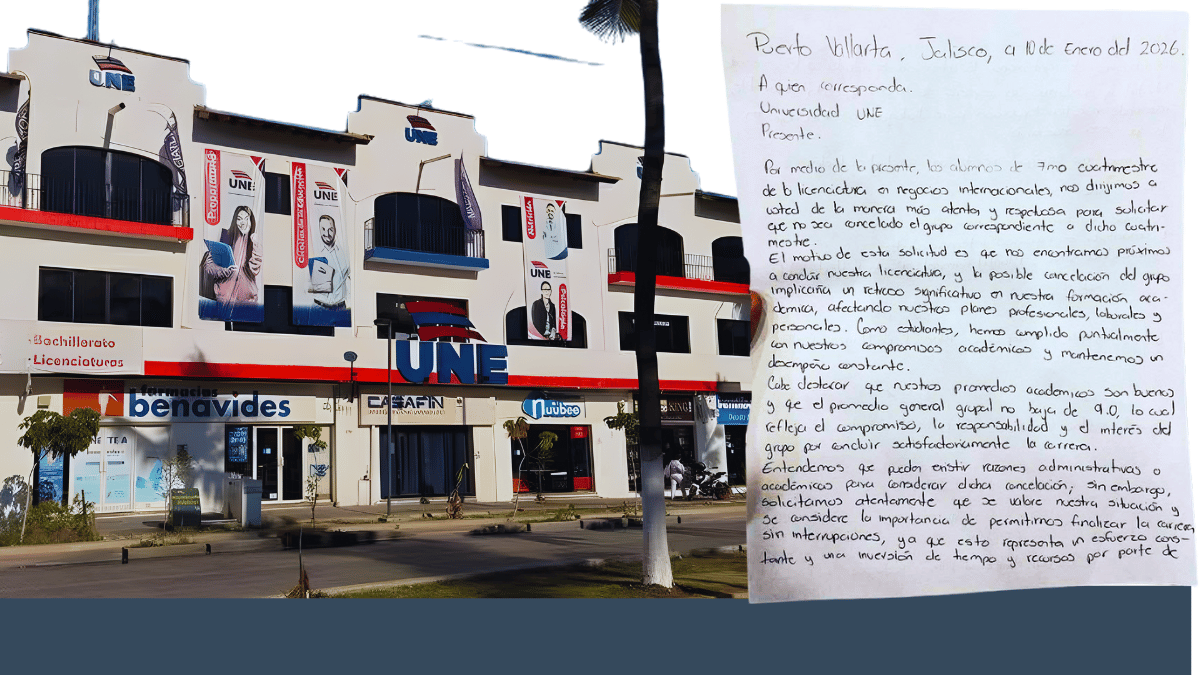 UNE
UNE
Preparatoria
UNE
UNE
Nutrición
UNE
Psicología
UNE
·Bachillerato
·Licenciaturas
farmacias
benavides
CASAFIN
nuubee
Puerto Vallarta, Jalisco, a 10 de Enero del 2026.
A quien corresponda.
Universidad UNE
Presente.
Por medio de la presente, los alumnos de 7mo cuatrimestre
de la licenciatura en negocios internacionales, nos dirijimos a
usted de la manera más atenta y respetuosa para solicitar
que no sea cancelado el grupo correspondiente a dicho cuatri-
mestre.
El motivo de esta solicitud es que nos encontramos próximos
a concluir nuestra licenciatura, y la posible cancelación del grupo
implicaría un retraso significativo en nuestra formación aca-
démica, afectando nuestros planes profesionales, laborales y
personales. Como estudiantes, hemos cumplido puntualmente
con nuestros compromisos académicos y mantenemos un
desempeño constante.
Cabe destacar que nuestros promedios académicos son buenos
y que el promedio general grupal no baja de 9.0, lo cual
refleja el compromiso, la responsabilidad y el interés del
grupo por concluir satisfactoriamente la carrera.
Entendemos que puedan existir razones administrativas o
académicas para considerar dicha cancelación; sin embargo,
solicitamos atentamente que se valore nuestra situación y
se considere la importancia de permitirnos finalizar la carrera
sin interrupciones, ya que esto representa un esfuerzo cons-
tante y una inversión de tiempo y recursos por parte de